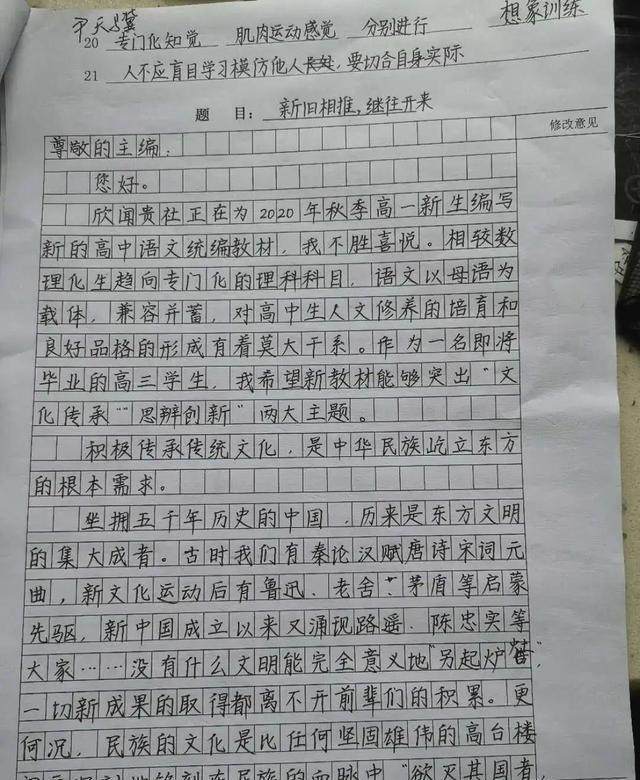 尹天翼
20 专门化知觉 肌肉运动感觉 分别进行 想象训练
21 人不应盲目学习模仿他人长处,要切合自身实际
题 目: 新旧相推,继往开来
修改意见
尊敬的主编:
您好。
欣闻贵社正在为2020年秋季高一新生编写
新的高中语文统编教材,我不胜喜悦。相较数
理化生趋向专门化的理科科目,语文以母语为
载体,兼容并蓄,对高中生人文修养的培育和
良好品格的形成有着莫大干系。作为一名即将
毕业的高三学生,我希望新教材能够突出“文
化传承”“思辨创新”两大主题。
积极传承传统文化,是中华民族屹立东方
的根本需求。
坐拥五千年历史的中国,历来是东方文明
的集大成者。古时我们有秦论汉赋唐诗宋词元
曲,新文化运动后有鲁迅、老舍、茅盾等启蒙
先驱,新中国成立以来又涌现路遥、陈忠实等
大家……没有什么文明能完全意义地“另起炉灶”,
一切新成果的取得都离不开前辈们的积累。更
何况,民族的文化是比任何坚固雄伟的高台楼
民族的血脉中“欲灭其国者